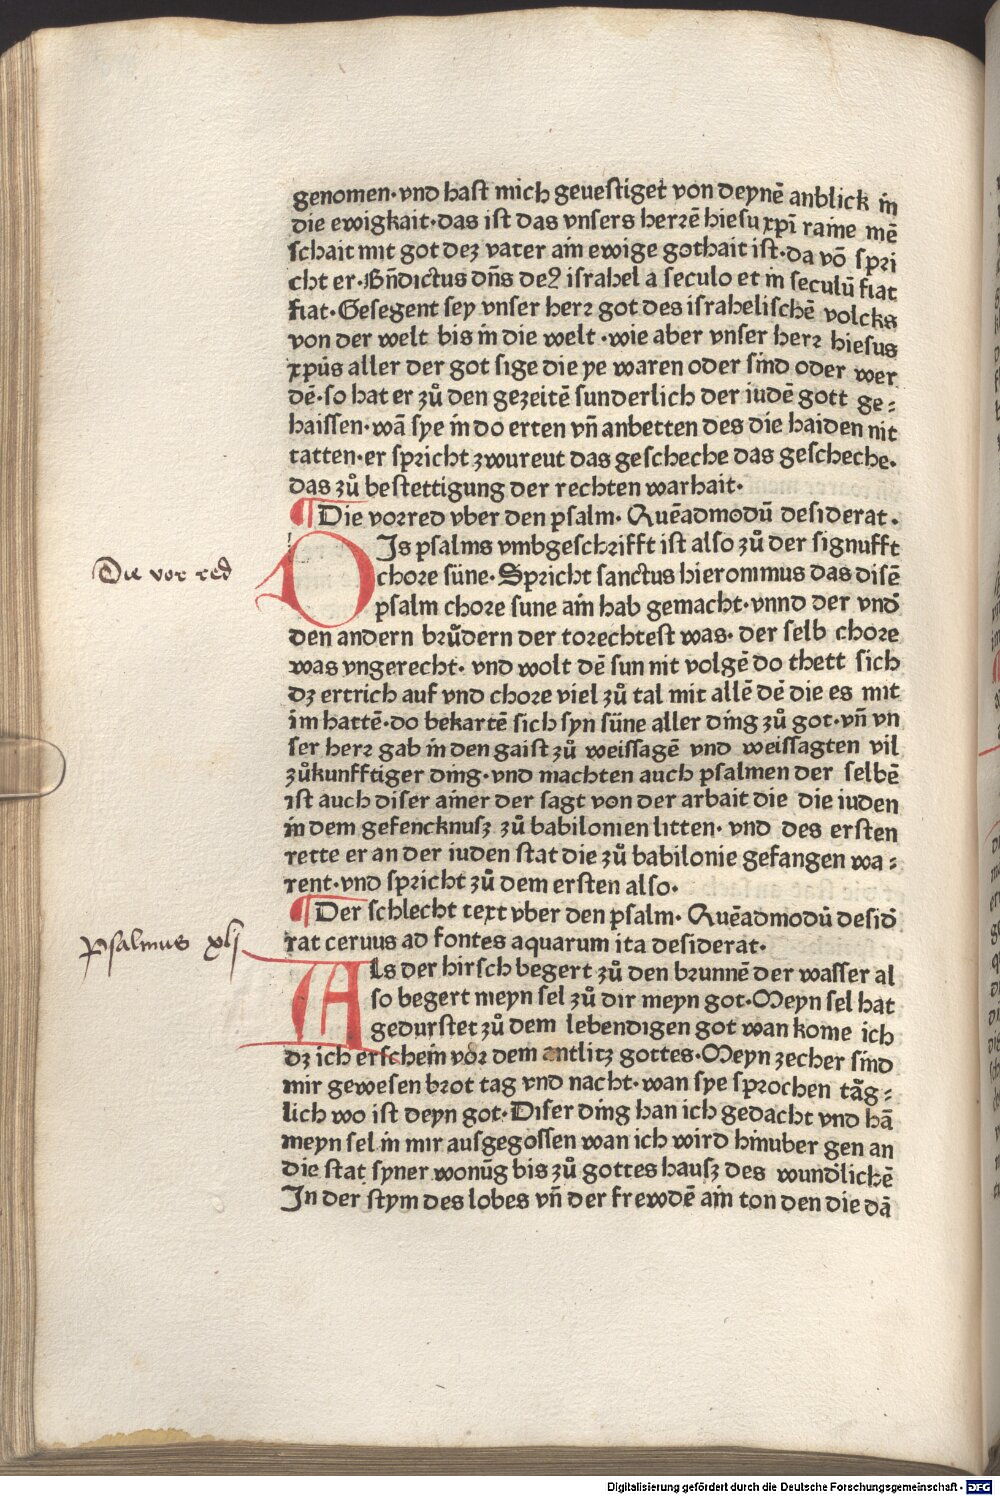 genomen·vnd hast mich geuestiget von deynē anblick in
die ewigkait·das ist das vnsers herrē hiesu xpi̅ raine mē
schait mit got dez vater ain ewige gothait ist·da vō spri
cht er·Bn̄dictus dn̄s deꝰ israhel a seculo et in seculū fiat
fiat·Gesegent sey vnser herr got des israhelischē volcks
von der welt bis in die welt·wie aber vnser herr hiesus
xpūs aller der got sige die ye waren oder sind oder wer
dē·so hat er zů den gezeitē sunderlich der iudē gott ge⸗
haissen·wā sye in do erten vn̄ anbetten des die haiden nit
tatten·er spricht zwureut das gescheche das gescheche·
das zů bestettigung der rechten warhait·
¶Die vorred vber den psalm·Quēadmodū desiderat·
Die vor red
DIs psalms vmbgeschrifft ist also zů der signufft
chore süne·Spricht sanctus hieronimus das disē
psalm chore sune ain hab gemacht·vnnd der vnd̓
den andern brůdern der torechtest was·der selb chore
was vngerecht·vnd wolt dē sun nit volgē do thett sich
dz ertrich auf vnd chore viel zů tal mit allē dē die es mit
im hattē·do bekartē sich syn süne aller ding zů got·vn̄ vn
ser herr gab in den gaist zů weissagē vnd weissagten vil
zůkunfftiger ding·vnd machten auch psalmen der selbē
ist auch diser ainer der sagt von der arbait die die iuden
in dem gefencknusz zů babilonien litten·vnd des ersten
rette er an der iuden stat die zů babilonie gefangen wa⸗
rent·vnd spricht zů dem ersten also·
¶Der schlecht text vber den psalm·Quēadmodū desid̓
rat ceruus ad fontes aquarum ita desiderat·
Psalmus xlj
Als der hirsch begert zů den brunnē der wasser al
so begert meyn sel zů dir meyn got·Meyn sel hat
gedurstet zů dem lebendigen got wan kome ich
dz ich erschein vor dem antlitz gottes·Meyn zecher sind
mir gewesen brot tag vnd nacht·wan sye sprochen tāg⸗
lich wo ist deyn got·Diser ding han ich gedacht vnd hā
meyn sel in mir ausgegossen wan ich wird hinuber gen an
die stat syner wonūg bis zů gottes hausz des wund̓lichē
In der stym des lobes vn̄ der frewdē ain ton den die dā
Digitalisierung gefördert durch die Deutsche Forschungsgemeinschaft - DFG